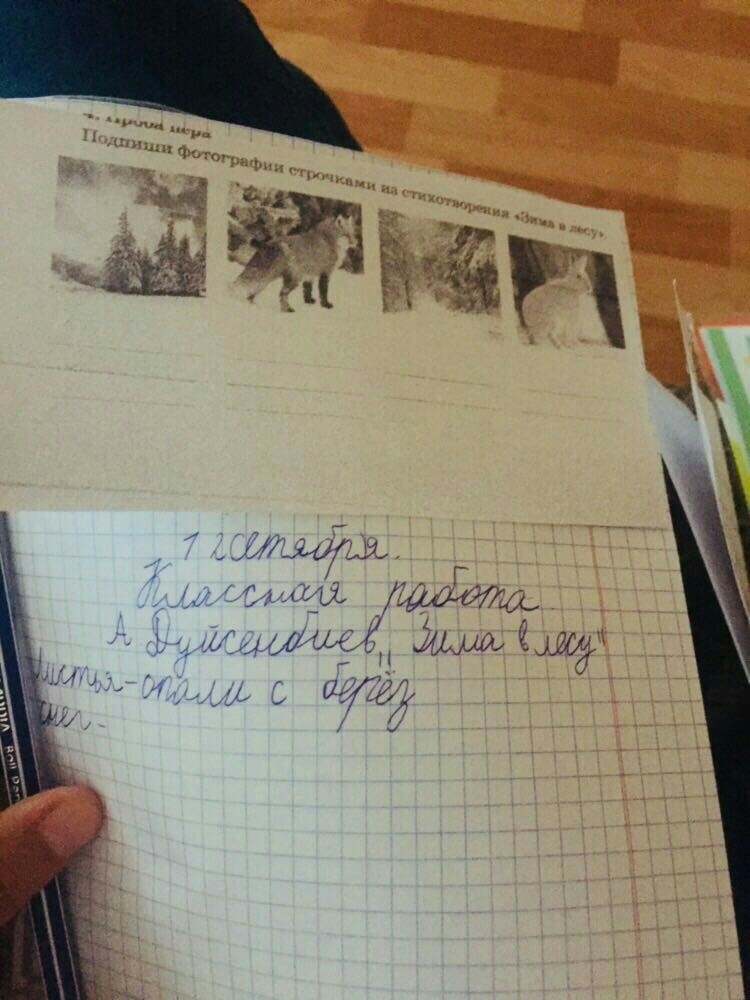 4. Проба пера
Подпиши фотографии строчками из стихотворения «Зима в лесу».
12сетября.
Классная работа
А Дуйсенбиев „Зима в лесу"
Листья-опали с берёз
снег-